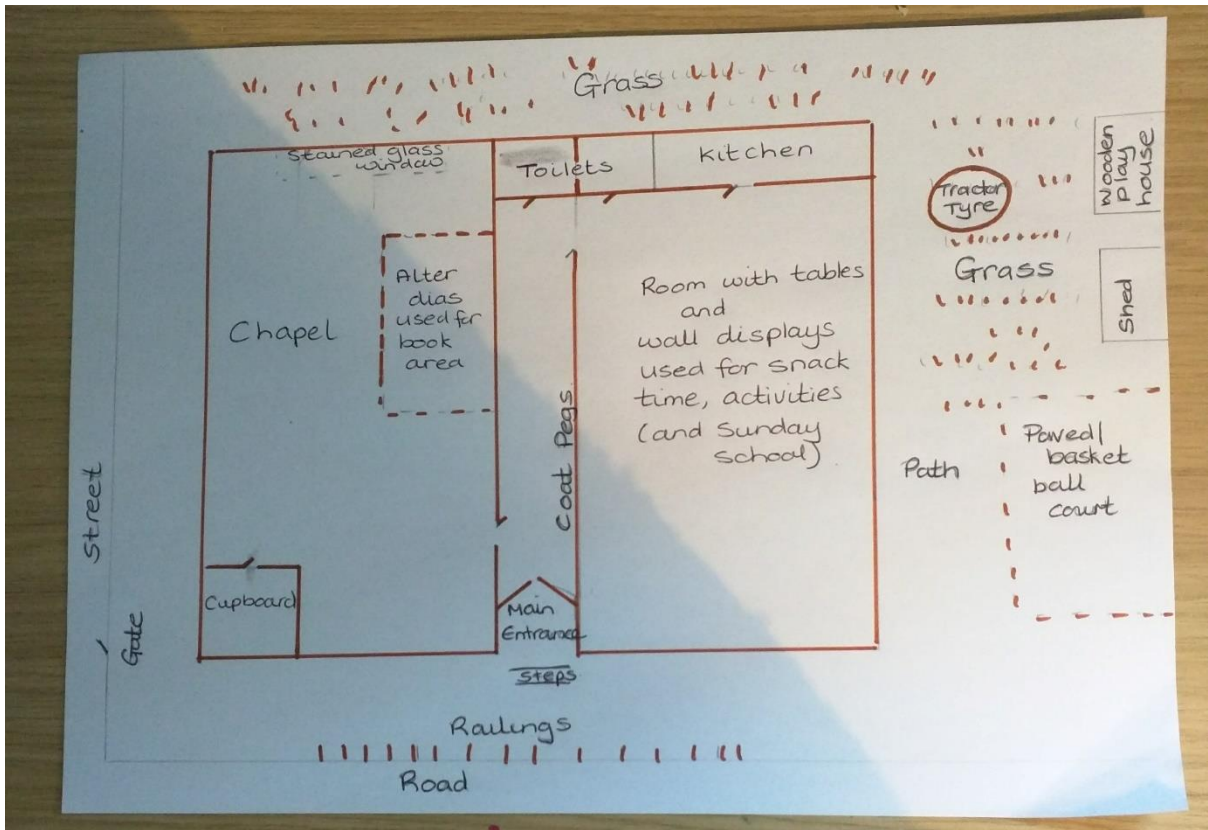 Grass
Stained glass
window
Toilets
Kitchen
Wooden
Play
house
Tractor
Tyre
Grass
Shed
Chapel
Alter
dias
used for
book
area
Coat Pegs
Room with tables
and
wall displays
used for snack
time, activities
(and Sunday
school)
Path
Paved/
basket
ball
court
Street
Gate
Cupboard
Main
Entrance
Steps
Railings
Road